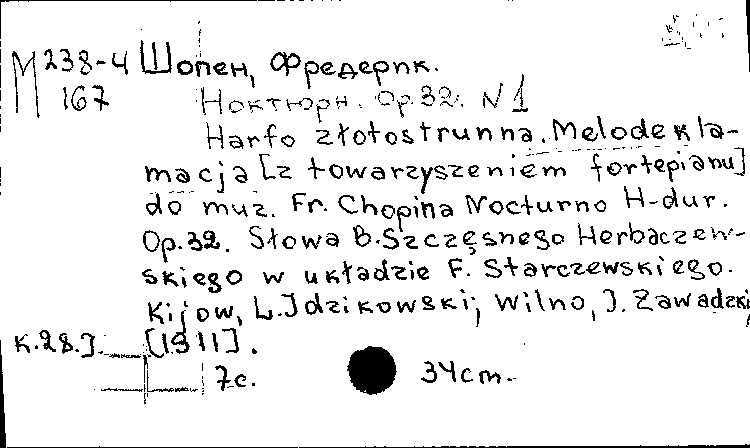 М 238-4 Шопен, Фредерик.
167 Ноктюрн. Op.32. N 1
Harfo złotostrunna. Melodekla-
macja [z towarzyszeniem fortepianu]
do muz. Fr. Chopina Nocturno H-dur.
Op.32. Słowa B.Szczęsnego Herbaczew-
skiego w układzie F. Starczewskiego.
Kijow, L.Idzikowski; Wilno, J. Zawadzki
К.28.J. [1911].
7с. 34cm.